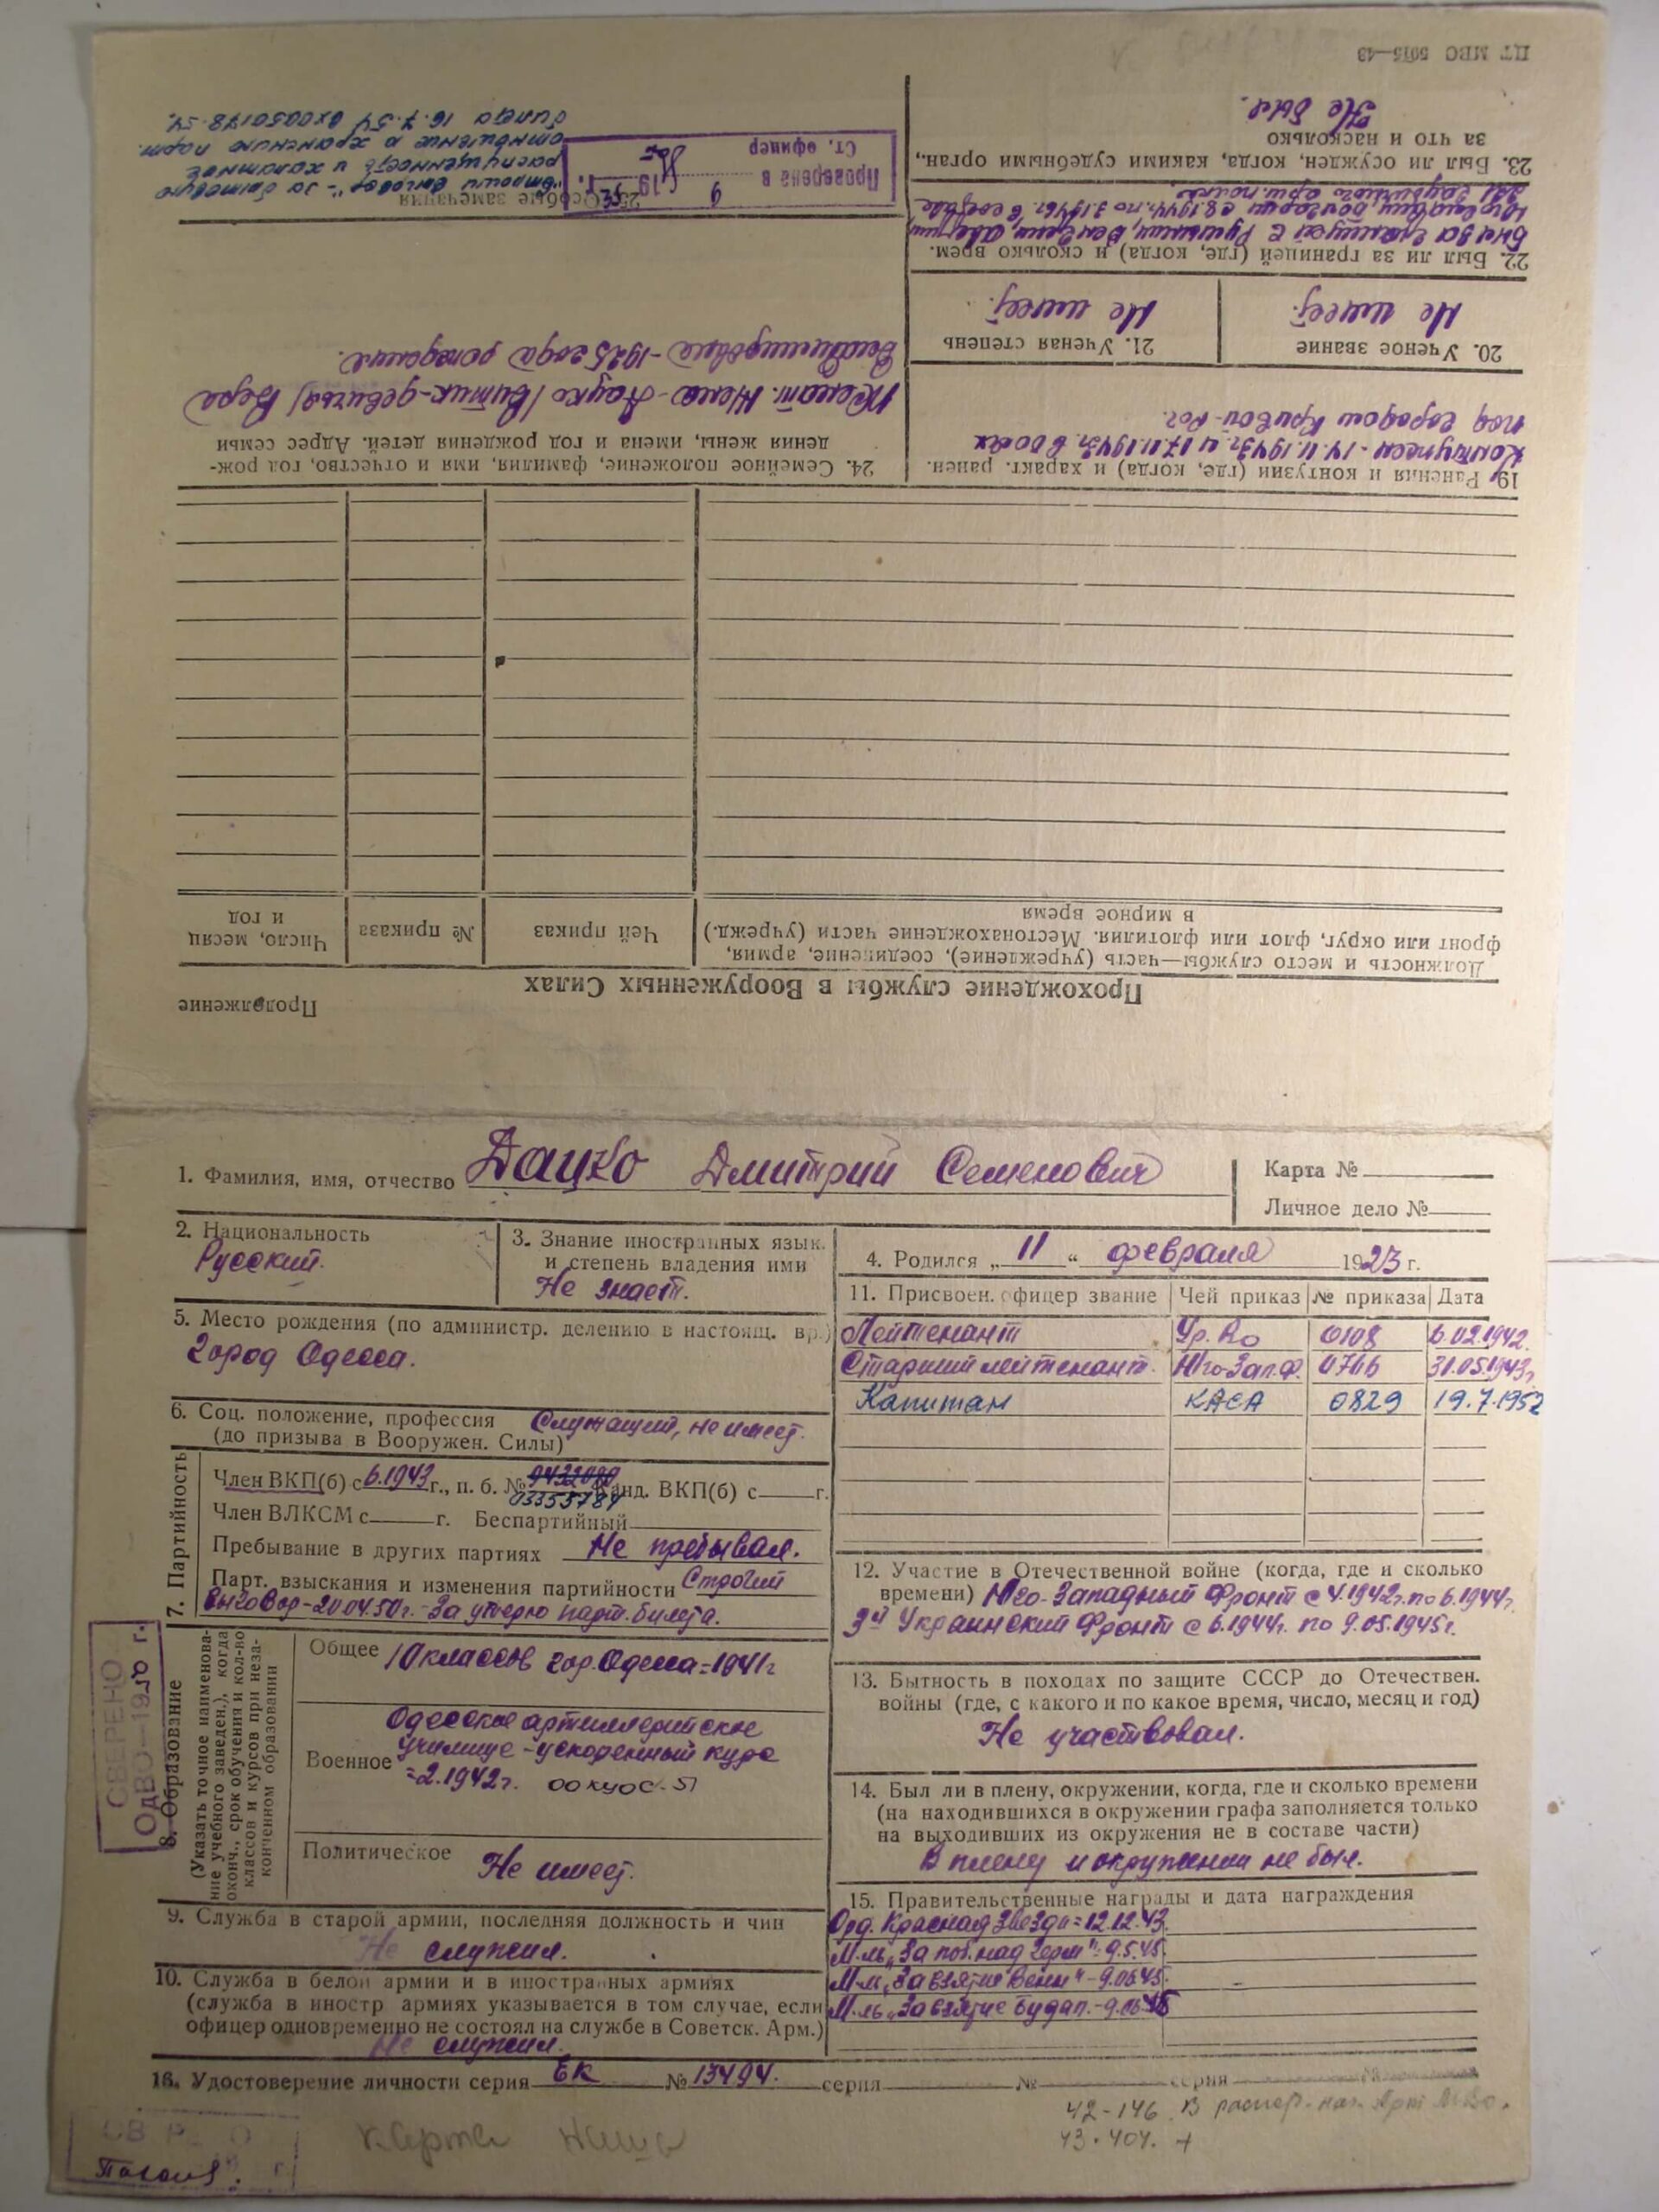 ЦТ МВС 5015—43
23. Был ли осужден, когда, какими судебными орган.,
за что и насколько
Не был.
22. Был ли за границей (где, когда) и сколько врем.
Был за границей в Румынии, Венгрии, Австрии,
Югославии Болгарии с 8.1944г. по 3.1946г. в составе
20. Ученое звание
Не имеет.
21. Ученая степень
Не имеет.
19. Ранения и контузии (где, когда) и характ. ранен.
Контужен - 14.11.1943г. и 17.11.1943г. в боях
под городом Кривой-Рог.
25. Особые замечания
"Строгий выговор" - за бытовую
распущенность и халатное
отношение к хранению парт.
билета 16.7.54
Проверена в
9 19 52 г.
Ст. офицер
24. Семейное положение, фамилия, имя и отчество, год рож-
дения жены, имена и год рождения детей. Адрес семьи
Женат. Жена - Дацко /Витик-девичья/ Вера
Владимировна - 1925 года рождения.
Продолжение
Прохождение службы в Вооруженных Силах
Должность и место службы—часть (учреждение), соединение, армия,
фронт или округ, флот или флотилия. Местонахождение части (учрежд.)
в мирное время
Чей приказ
№ приказа
Число, месяц
и год
1. Фамилия, имя, отчество Дацко Дмитрий Семенович
Карта №
Личное дело №
2. Национальность
Русский.
3. Знание иностранных язык.
и степень владения ими
Не знает.
4. Родился „ 11 “ февраля 1923 г.
5. Место рождения (по администр. делению в настоящ. вр.)
город Одесса.
6. Соц. положение, профессия Служащий, не имеет.
(до призыва в Вооружен. Силы)
7. Партийность
Член ВКП(б) с 6.1943 г., п. б. № 9432080 Канд. ВКП(б) с г.
03355784
Член ВЛКСМ с г. Беспартийный
Пребывание в других партиях Не пребывал.
Парт. взыскания и изменения партийности Строгий
выговор - 20.04.50г. - За утерю парт. билета.
СВЕРЕНО
ОдВО—1950 г.
8. Образование
(Указать точное наименова-
ние учебного заведен.), когда
оконч., срок обучения и кол-во
классов и курсов при неза-
конченном образовании
Общее 10 классов гор. Одесса = 1941г
Военное Одесское артиллерийское
училище - ускоренный курс
= 2.1942г. ООКУОС-51
Политическое Не имеет.
9. Служба в старой армии, последняя должность и чин
Не служил.
10. Служба в белой армии и в иностранных армиях
(служба в иностр армиях указывается в том случае, если
офицер одновременно не состоял на службе в Советск. Арм.)
Не служил.
11. Присвоен. офицер звание | Чей приказ | № приказа | Дата
Лейтенант Ур. Во 0108 6.02.1942.
Старший лейтенант. Юго-Зап.Ф. 0766 31.05.1943г.
Капитан КАСА 0829 19.7.1952
12. Участие в Отечественной войне (когда, где и сколько
времени) Юго-Западный Фронт с 4.1942г. по 6.1944г.
3й Украинский Фронт с 6.1944г. по 9.05.1945г.
13. Бытность в походах по защите СССР до Отечествен.
войны (где, с какого и по какое время, число, месяц и год)
Не участвовал.
14. Был ли в плену, окружении, когда, где и сколько времени
(на находившихся в окружении графа заполняется только
на выходивших из окружения не в составе части)
В плену и окружении не был.
15. Правительственные награды и дата награждения
Орд. Красная Звезда = 12.12.43.
М.ль „За поб. над Герм“ - 9.5.45.
М-ль „За взятие Вены“ - 9.06.45.
М.ль „За взятие Будап. - 9.06.45
16. Удостоверение личности серия ЕК № 13494. серия № серия №
карта наша
42-146. В распор.
43.404. +